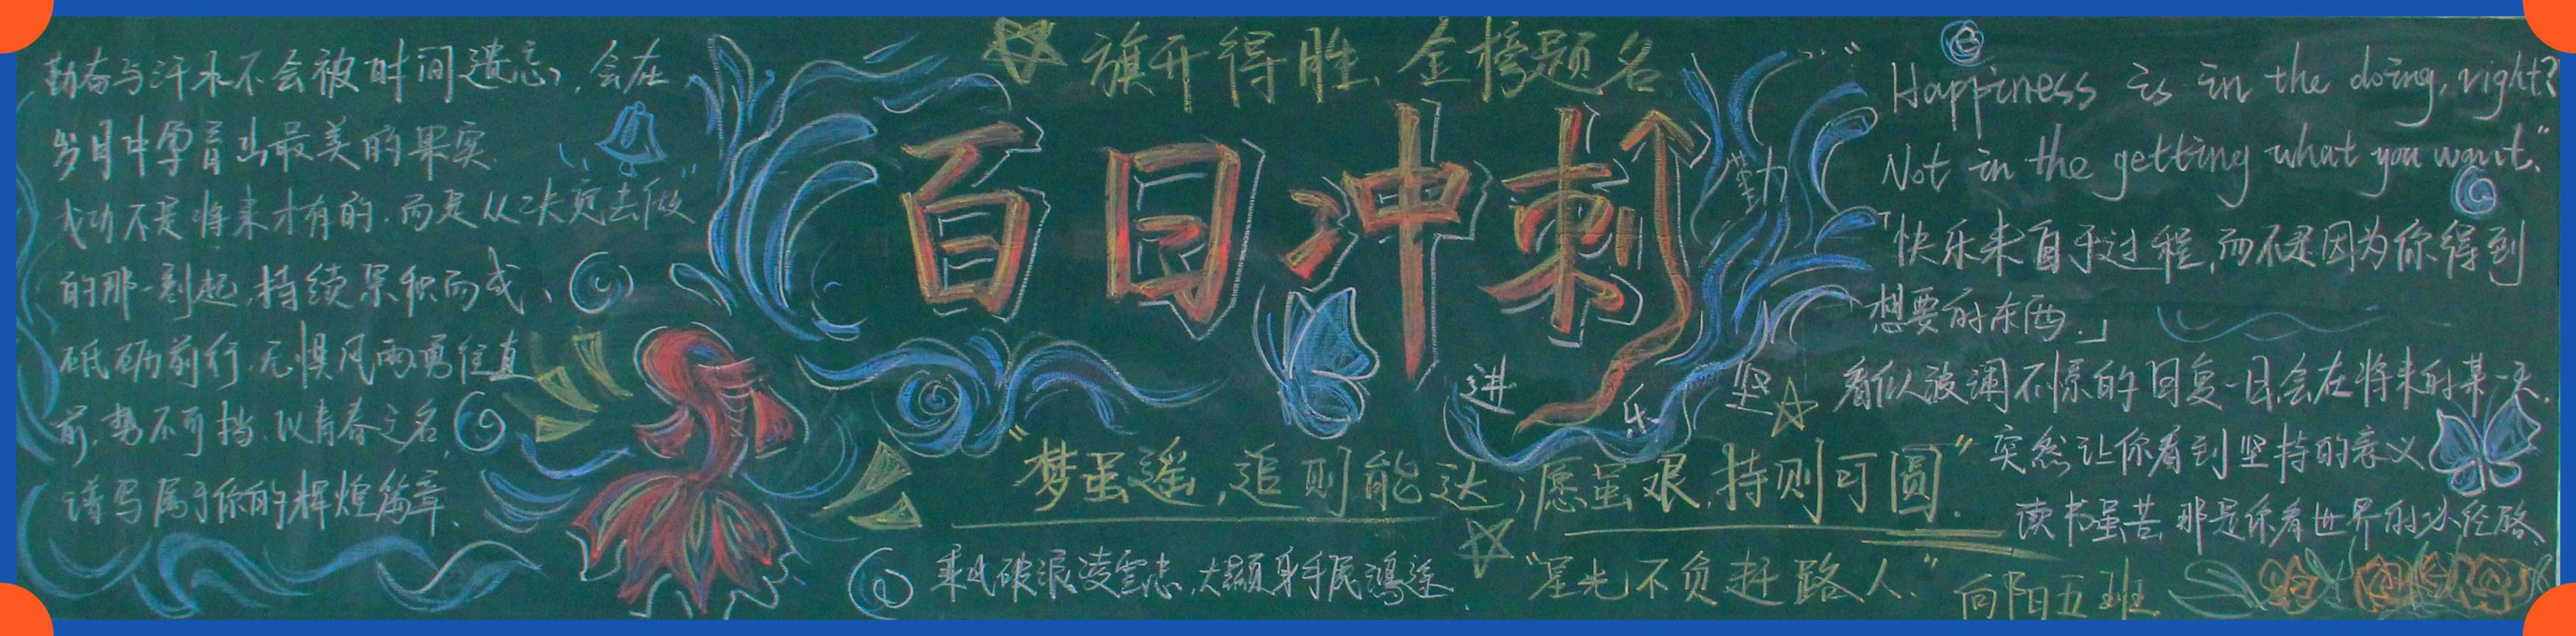 勤奋与汗水不会被时间遗忘，会在
岁月中孕育出最美的果实.
成功不是将来才有的.而是从"决定去做"
的那一刻起,持续累积而成.
砥砺前行,无惧风雨,勇往直
前,势不可挡.以青春之名,
谱写属于你的辉煌篇章.
旗开得胜、金榜题名
百日冲刺
勤
进
乐
坚
"梦虽遥,追则能达;愿虽艰,持则可圆".
乘风破浪凌云志,大显身手展鸿途
"星光不负赶路人."
Happiness is in the doing, right?
Not in the getting what you want."
「快乐来自于过程,而不是因为你得到
想要的东西.」
看似波澜不惊的日复一日,会在将来的某一天.
突然让你看到坚持的意义
读书虽苦,那是你看世界的必经路
向阳五班.